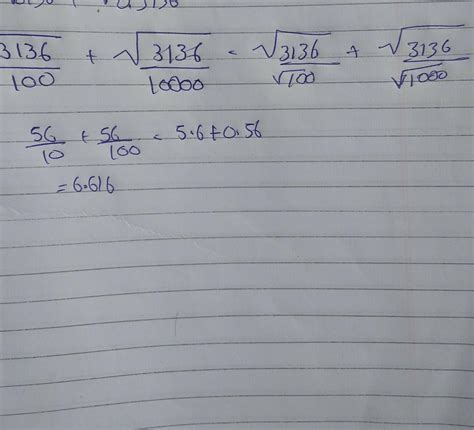 √3136/100 + √3136/10000 = √3136/√100 + √3136/√1000
56/10 + 56/100 = 5.6+0.56
= 6.616